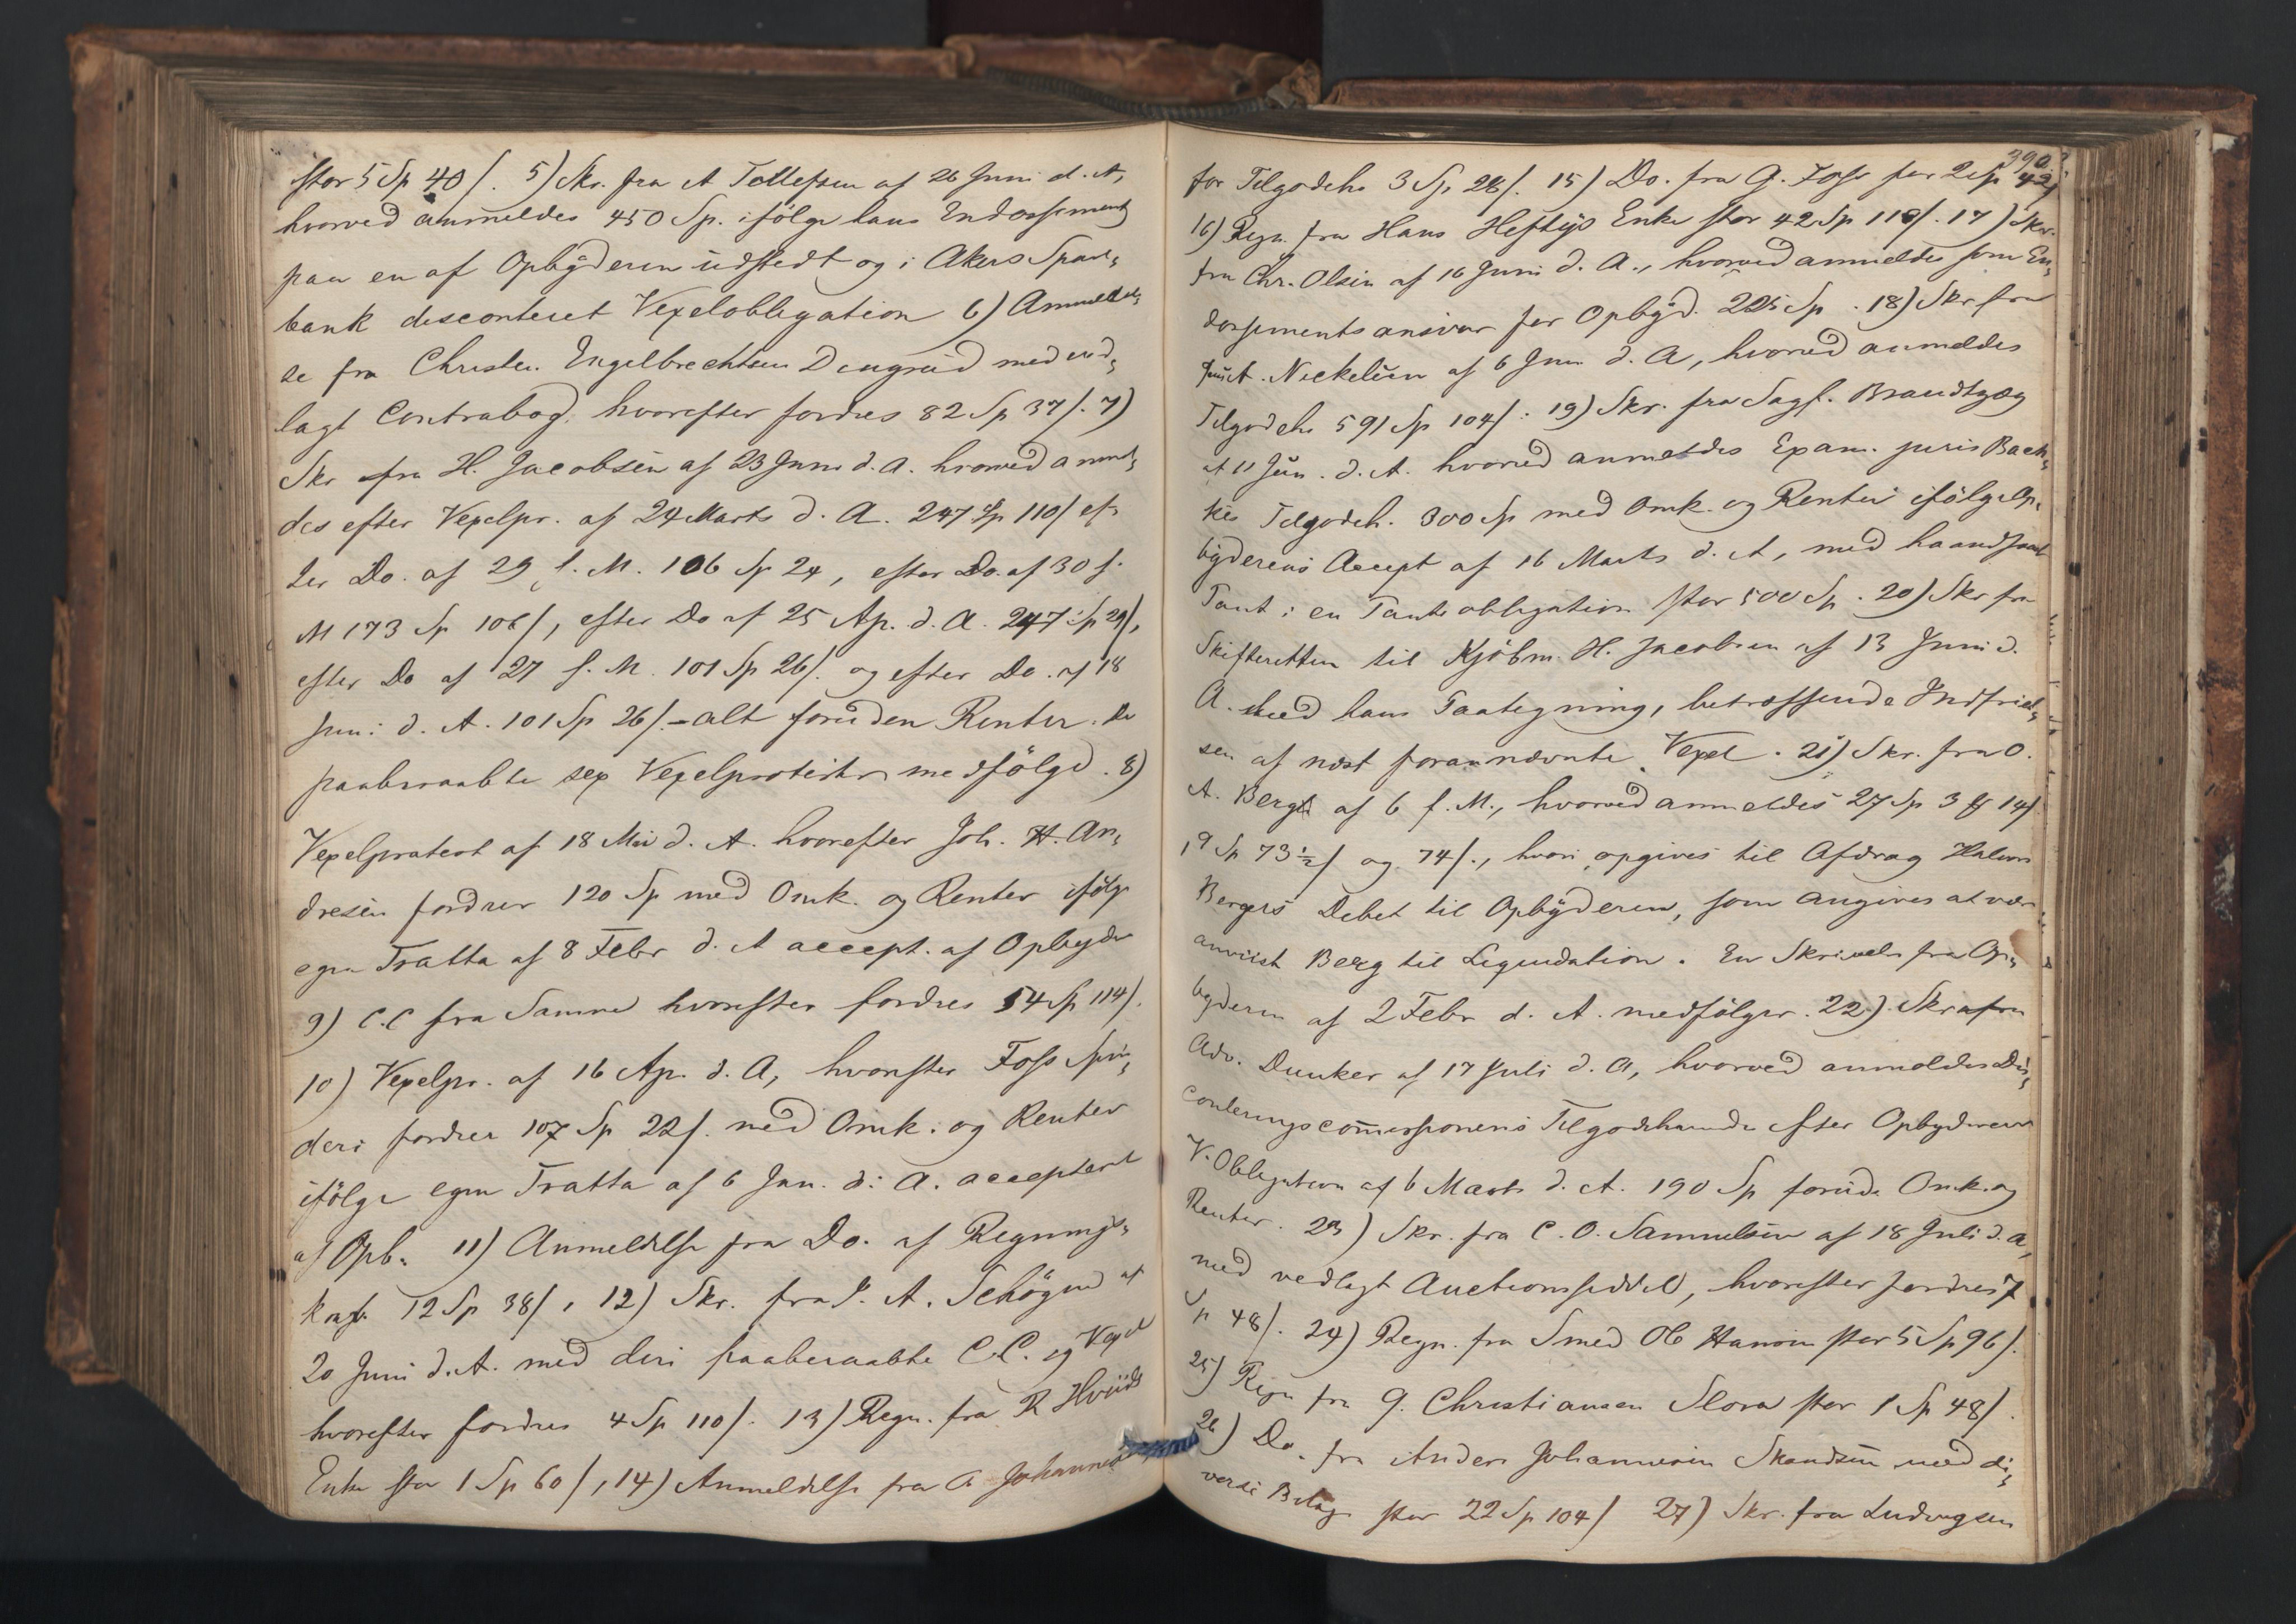 stor 5 Sp 40 ſ. 5) Skr. fra A Tollefsen af 26 Juni d. A,
hvorved anmeldes 450 Sp. ifölge hans Endossement
paa en af Opbyderen udstedt og i Akers Spare,
bank disconteret Vexelobligation 6) Anmeldel,
se fra Christen Engelbrechtsen Dengrud med ved,
lagt Contrabog, hvorefter fordres 82 Sp 37 ſ. 7)
Skr fra H. Jacobsen af 23 Juni d. A. hvorved anmel,
des efter Vexelpr. af 24 Marts d. A. 247 Sp 110 ſ ef,
ter Do. af 29 s. M. 106 Sp 24, efter Do. af 30 s.
M 173 Sp 106 ſ, efter Do af 25 Ap. d. A. 247 Sp 29 ſ,
efter Do af 27 s. M. 101 Sp 26 ſ. og efter Do. af 18
Juni d. A. 101 Sp 26 ſ. - alt foruden Renter. De
paaberaabte sex Vexelprotester medfölge. 8)
Vexelprotest af 18 Mai d. A. hvorefter Joh. H. An,
dresen fordrer 120 Sp med Omk. og Renter ifölge
egen Tratta af 8 Febr d. A accept. af Opbyder
9) C.C fra Samme hvorefter fordres 54 Sp 114 ſ.
10) Vexelpr. af 16 Ap. d. A, hvorefter Foss Spin,
deri fordrer 107 Sp 22 ſ. med Omk. og Renter
ifölge egen Tratta af 6 Jan. d. A. acceptert
af Opb. 11) Anmeldelse fra Do. af Regnings,
krav 12 Sp 38 ſ, 12) Skr. fra J. A. Schögen af
20 Juni d. A. med deri paaberaabte C.C. og Vexel
hvorefter fordres 4 Sp 110 ſ. 13) Regn. fra R Hviids
Enke stor 1 Sp 60 ſ, 14) Anmeldelse fra A Johannesen
392
for Tilgodeh. 3 Sp 28 ſ. 15) Do. fra G. Foss for 2 Sp 42 ſ
16) Regn. fra Hans Heftys Enke stor 42 Sp 118 ſ. 17) Skr.
fra Chr. Olsen af 16 Juni d. A., hvorved anmeldes som En,
dossements ansvar for Opbyd. 225 Sp. 18) Skr fra
A. Nickelsen af 6 Juni d. A, hvorved anmeldes
Tilgodeh. 591 Sp 104 ſ. 19) Skr. fra Sagf. Brandtzæg
af 11 Jun. d. A. hvorved anmeldes Exam. juris Bach,
kes Tilgodeh. 300 Sp med Omk. og Renter ifölge Op,
byderens Accept af 16 Marts d. A, med haandfaaet
Pant i en Panteobligation stor 500 Sp. 20) Skr fra
Skifteretten til Kjöbm. H. Jacobsen af 13 Juni d.
A. med hans Paategning, betræffende Indfriel,
sen af næst forannævnte Vexel. 21) Skr. fra O.
A. Berg af 6 f. M., hvorved anmeldes 27 Sp 3 ₰ 14 ſ
, 9 Sp 73 ½ ſ og 74 ſ., hvori opgives til Afdrag Halvor
Bergers Debet til Opbyderen, som angives at være
anviist Berg til Liqvidation. En Skrivelse fra Op,
byderen af 2 Febr d. A. medfölger. 22) Skr fra
Adv. Dunker af 17 Juli d. A, hvorved anmeldes Dis,
conteringscommissionens Tilgodehavende efter Opbyderens
V. Obligation af 6 Marts d. A. 190 Sp foruden Omk. og
Renter. 23) Skr. fra C. O. Samuelsen af 18 Juli d. A,
med vedlagt Auctionsseddel, hvorefter fordres 7
Sp 48 ſ. 24) Regn. fra Smed Ole Hansen stor 5 Sp 96 ſ.
25) Regn fra G. Christiansen Slora stor 1 Sp 48 ſ.
26) Do. fra Anders Johannesen Skandsen med di,
verse Bilag stor 22 Sp 104 ſ 27) Skr. fra Ludvigsen